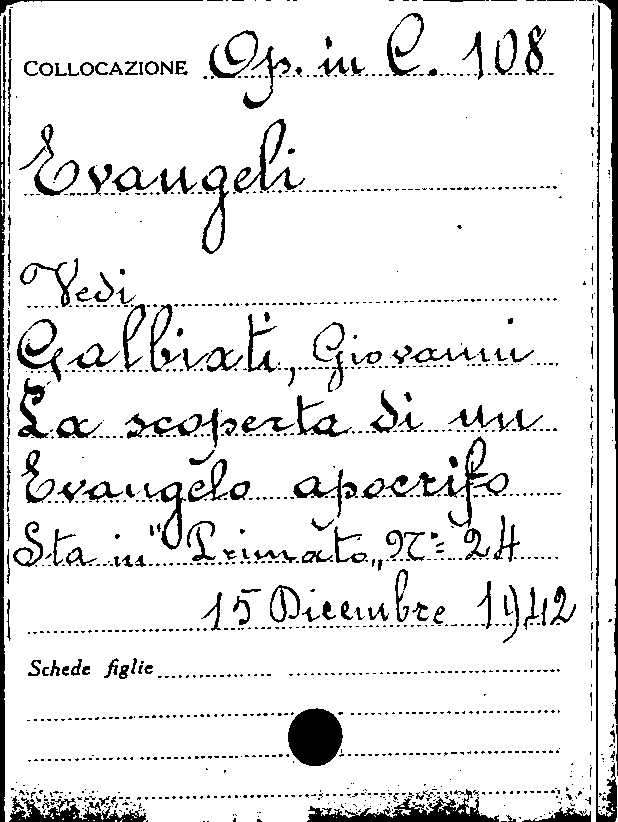 COLLOCAZIONE Op. in C. 108
Evangeli
Vedi
Galbiati, Giovanni
La scoperta di un
Evangelo apocrifo
Sta in "Primato„ N.º 24
15 Dicembre 1942
Schede figlie